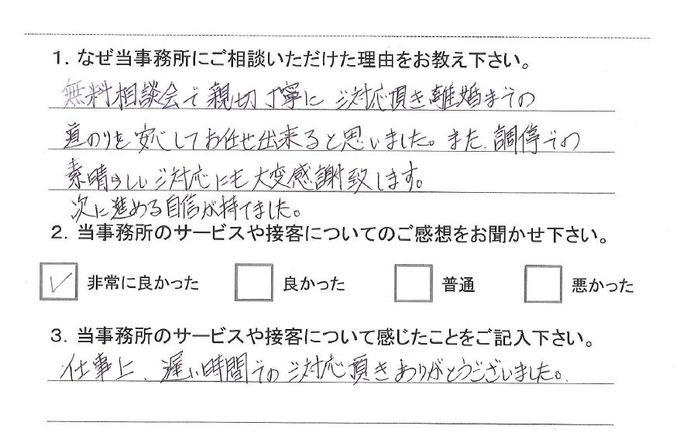 1. なぜ当事務所にご相談いただけた理由をお教え下さい。
無料相談会で親切丁寧にご対応頂き離婚までの
道のりを安心してお任せ出来ると思いました。また、調停での
素晴らしいご対応にも大変感謝致します。
次に進める自信が持てました。
2. 当事務所のサービスや接客についてのご感想をお聞かせ下さい。
非常に良かった 良かった 普通 悪かった
3. 当事務所のサービスや接客について感じたことをご記入下さい。
仕事上、遅い時間でのご対応頂きありがとうございました。